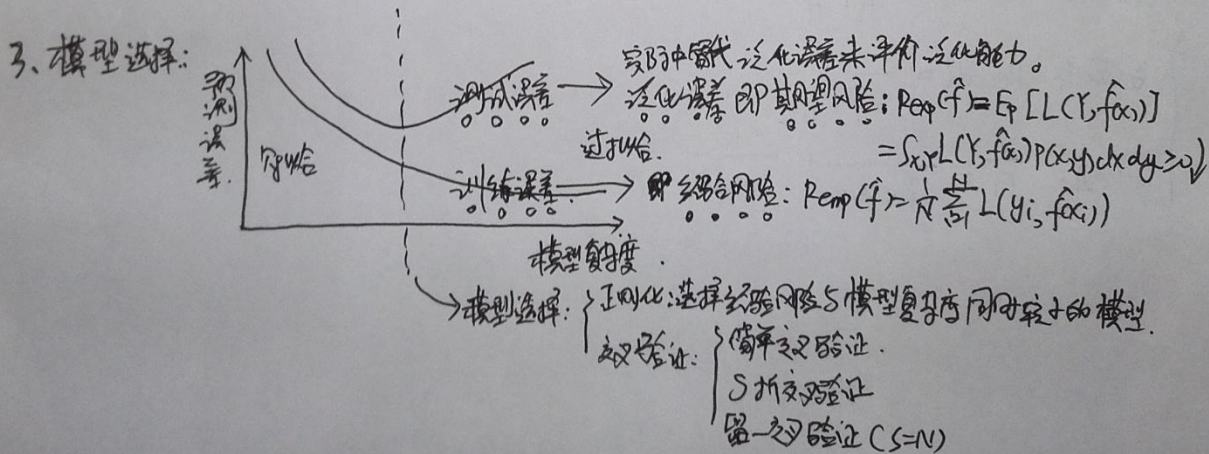 3、模型选择:
预测误差.
欠拟合
过拟合.
测试误差 → 实际中替代泛化误差来评价泛化能力。
泛化误差 即期望风险: Rexp(f̂)=Ep[L(Y,f̂(x))]
=∫x,y L(Y,f̂(x))P(x,y)dxdy≥0
训练误差 → 即经验风险: Remp(f̂)=1/N Σ(i=1→N) L(yi,f̂(xi))
模型复杂度.
→模型选择:
正则化:选择经验风险与模型复杂度同时较小的模型.
交叉验证:
简单交叉验证.
S折交叉验证
留一交叉验证(S=N)